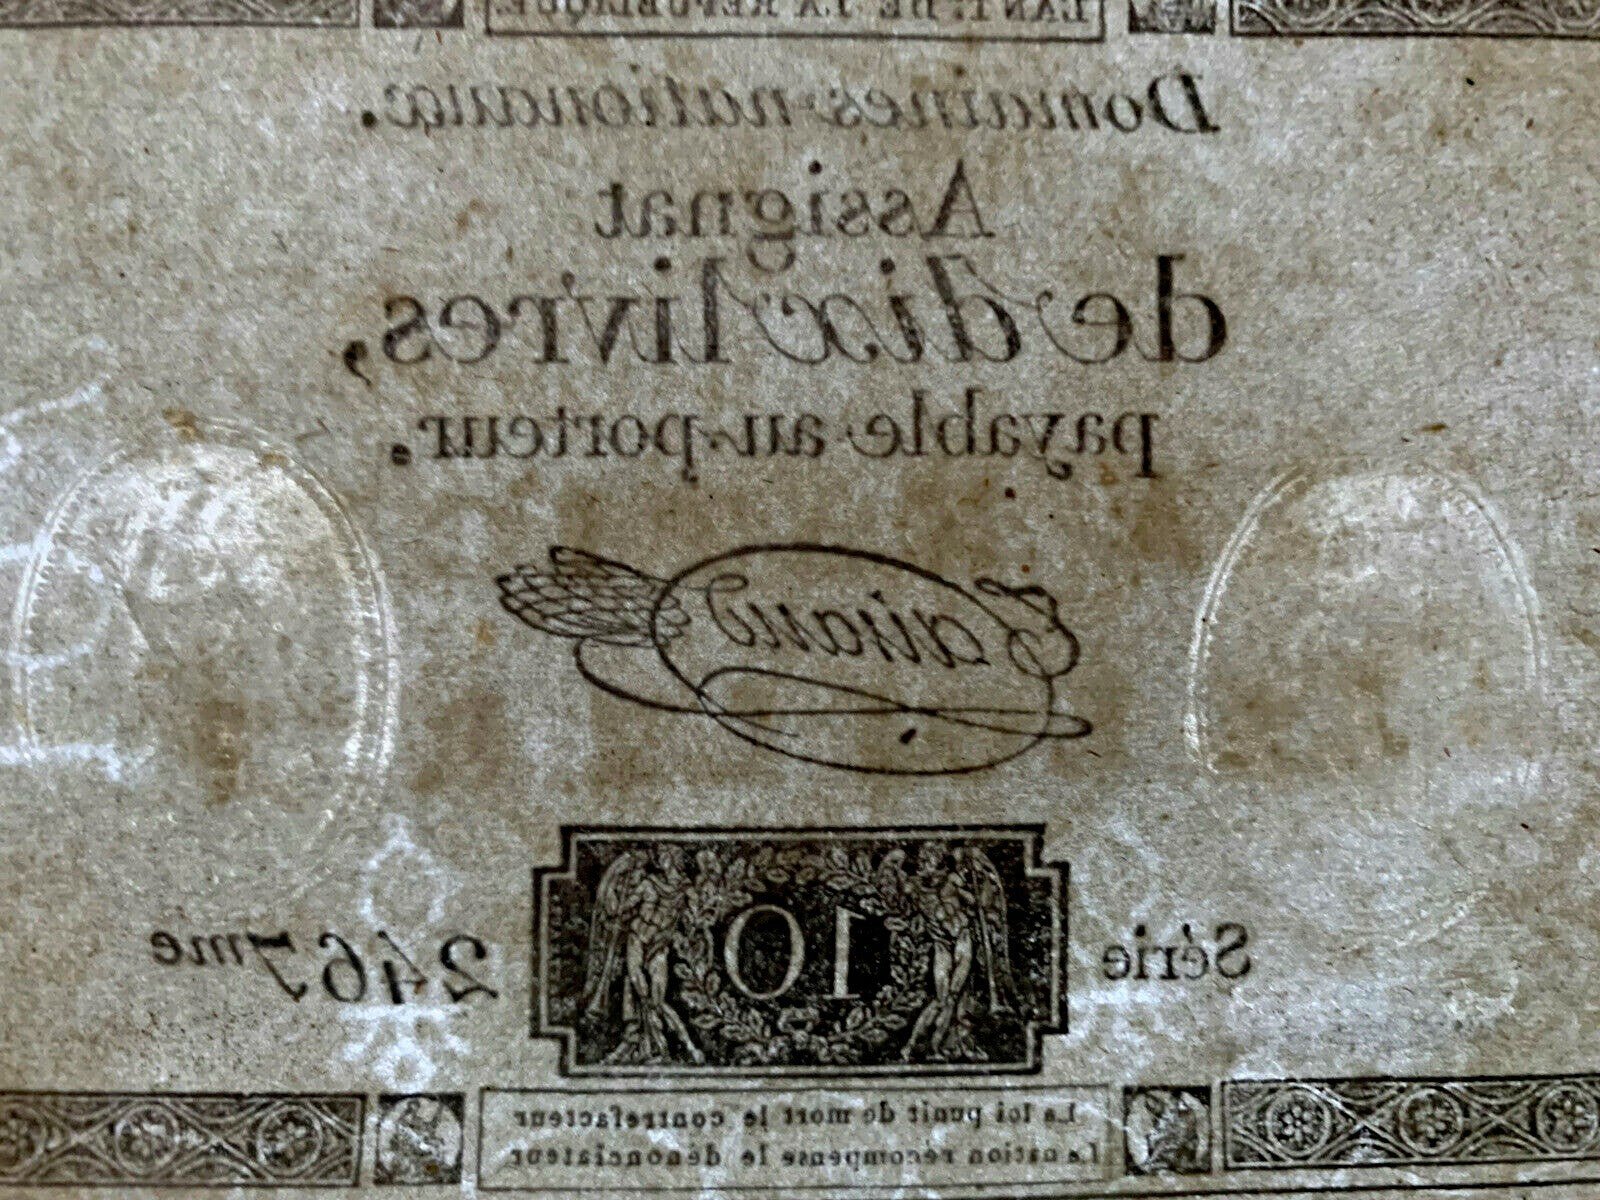 L'AN I.er DE LA RÉPUBLIQUE.
Domaines nationaux.
Assignat
de dix livres,
payable au porteur.
Taisaud
Série
10
2467me
La loi punit de mort le contrefacteur
La nation recompense le dénonciateur